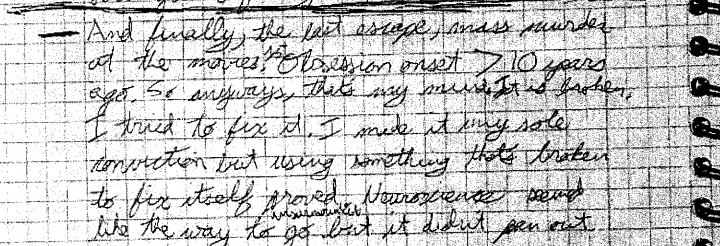 — And finally, the last escape, mass murder
at the movies. 1st Obsession onset > 10 years
ago. So anyways, that's my mind. It is broken.
I tried to fix it. I made it my sole
conviction but using something that's broken
to fix itself proved insurmountable Neuroscience seemed
like the way to go but it didn't pan out.